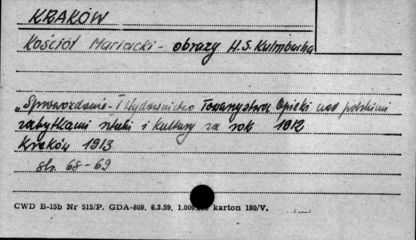 KRAKÓW
Kościół Mariacki - obrazy H.S. Kulmbacha
"Sprawozdanie i Wydawnictwo Towarzystwa Opieki nad polskimi
zabytkami sztuki i kultury za rok 1912
Kraków 1913
str. 68-69
CWD B-15b Nr 515/P. GDA-809. 6.3.59. 1.000 karton 180/V.